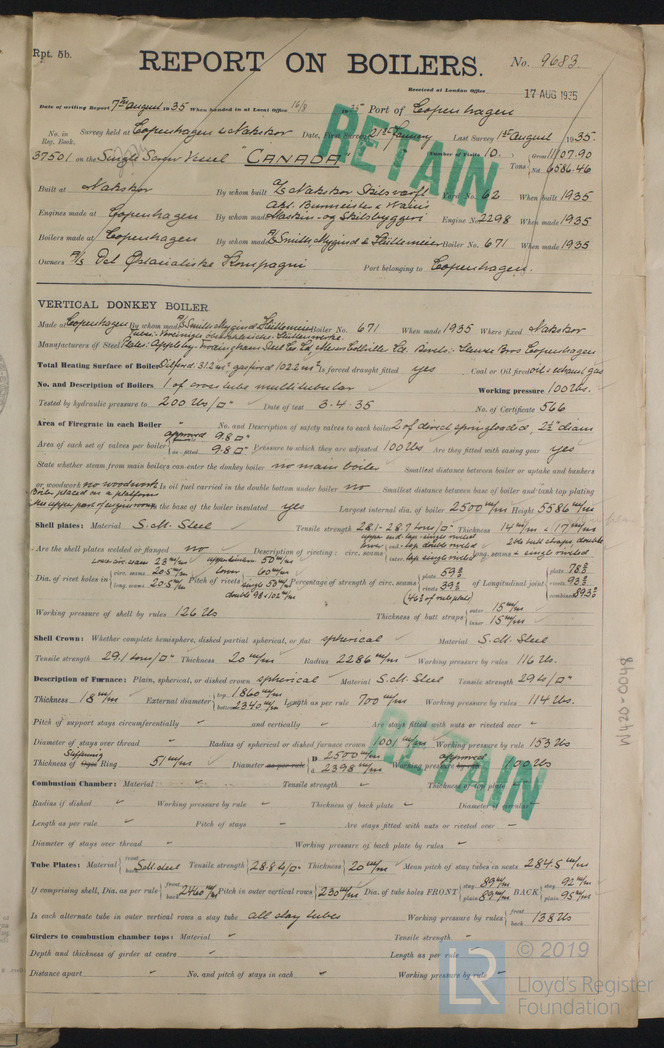 Rpt. 5b.
REPORT ON BOILERS.
No. 9683.
Received at London Office
17 AUG 1935
Date of writing Report 7th August 1935 When handed in at Local Office 16/8 35 Port of Copenhagen
No. in Reg. Book. Survey held at Copenhagen & Nakskov Date, First Survey 21st January Last Survey 1st August 1935.
(Number of Visits 10.
37501 on the Single Screw Vessel "CANADA" Tons Gross 11107.90 Net 6586.46
RETAIN
Built at Nakskov By whom built A/S Nakskov Skibsværft Yard No. 62 When built 1935
Engines made at Copenhagen By whom made Akt. Burmeister & Wain's Maskin- og Skibsbyggeri Engine No. 2298 When made 1935
Boilers made at Copenhagen By whom made A/S Smith, Mygind & Hüttemeier Boiler No. 671 When made 1935
Owners A/S Det Østasiatiske Kompagni Port belonging to Copenhagen.
VERTICAL DONKEY BOILER
Made at Copenhagen By whom made A/S Smith Mygind & Hüttemeier Boiler No. 671 When made 1935 Where fixed Nakskov
Manufacturers of Steel Plates: Appleby-Frodingham Steel Co Ld, Messrs Colville Ld. Rivets:
Total Heating Surface of Boiler Oilfired 31.2 m², gasfired 102.2 m² Is forced draught fitted yes Coal or Oil fired oil & exhaust gas
No. and Description of Boilers 1 of cross tube multitubular Working pressure 100 lbs.
Tested by hydraulic pressure to 200 lbs/□" Date of test 3-4-35 No. of Certificate 566
Area of Firegrate in each Boiler " No. and Description of safety valves to each boiler 2 of direct spring loaded, 2½" diam
Area of each set of valves per boiler approved 9.8 □" as fitted 9.8 □" Pressure to which they are adjusted 100 lbs Are they fitted with easing gear yes
State whether steam from main boilers can enter the donkey boiler no main boiler Smallest distance between boiler or uptake and bunkers
or woodwork no woodwork Is oil fuel carried in the double bottom under boiler no Smallest distance between base of boiler and tank top plating
Boiler placed on a platform in upper part of engine room Is the base of the boiler insulated yes Largest internal dia. of boiler 2500 m/m Height 5586 m/m
Shell plates: Material S.M. Steel Tensile strength 28.1-28.7 tons/□" Thickness 14 m/m & 17 m/m
Are the shell plates welded or flanged no Description of riveting: circ. seams upper end lap single riveted inter. lap single riveted long. seams
Dia. of rivet holes in circ. seams 20.5 m/m long. seams 20.5 m/m Pitch of rivets upper 50 m/m lower 60 m/m single 50 m/m double 98 & 102 m/m Percentage of strength of circ. seams plate 59% rivets 39% of Longitudinal joint plate 78% rivets 93% combined 89.3%
Working pressure of shell by rules 126 lbs Thickness of butt straps outer 15 m/m inner 15 m/m
Shell Crown: Whether complete hemisphere, dished partial spherical, or flat spherical Material S.M. Steel
Tensile strength 29.1 tons/□" Thickness 20 m/m Radius 2286 m/m Working pressure by rules 116 lbs.
Description of Furnace: Plain, spherical, or dished crown spherical Material S.M. Steel Tensile strength 29 ts/□"
Thickness 18 m/m External diameter top 1860 m/m bottom 2340 m/m Length as per rule 700 m/m Working pressure by rules 114 lbs.
Pitch of support stays circumferentially " and vertically " Are stays fitted with nuts or riveted over "
Diameter of stays over thread " Radius of spherical or dished furnace crown 1001 m/m Working pressure by rule 153 lbs
Thickness of Stiffening Ring 51 m/m Diameter as per rule D 2500 m/m d 2398 m/m Working pressure approved by rule 100 lbs
RETAIN
Combustion Chamber: Material " Tensile strength " Thickness of top plate "
Radius if dished " Working pressure by rule " Thickness of back plate " Diameter if circular "
Length as per rule " Pitch of stays " Are stays fitted with nuts or riveted over "
Diameter of stays over thread " Working pressure of back plate by rules "
Tube Plates: Material front back S.M. steel Tensile strength 28.8 ts/□" Thickness 20 m/m Mean pitch of stay tubes in nests 284.5 m/m
If comprising shell, Dia. as per rule front back 2460 m/m Pitch in outer vertical rows 230 m/m Dia. of tube holes FRONT stay 89 m/m plain 89 m/m BACK stay 92 m/m plain 95 m/m
Is each alternate tube in outer vertical rows a stay tube all stay tubes Working pressure by rules front back 138 lbs
Girders to combustion chamber tops: Material " Tensile strength "
Depth and thickness of girder at centre " Length as per rule "
Distance apart " No. and pitch of stays in each " Working pressure by rule "
W420-0048
LR
© 2019
Lloyd's Register
Foundation